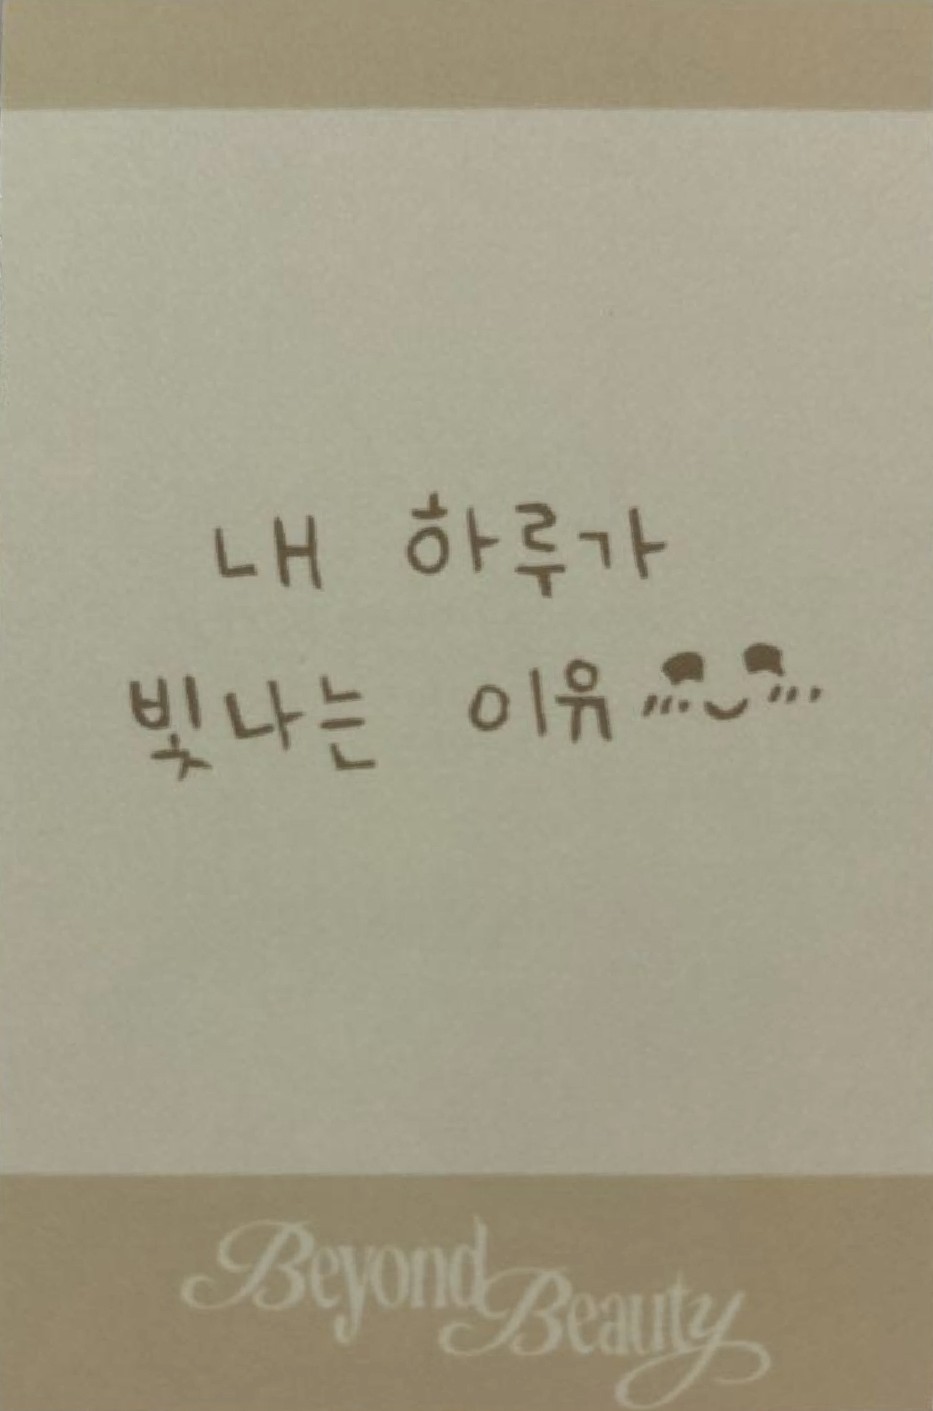 내 하루가
빛나는 이유
Beyond
Beauty